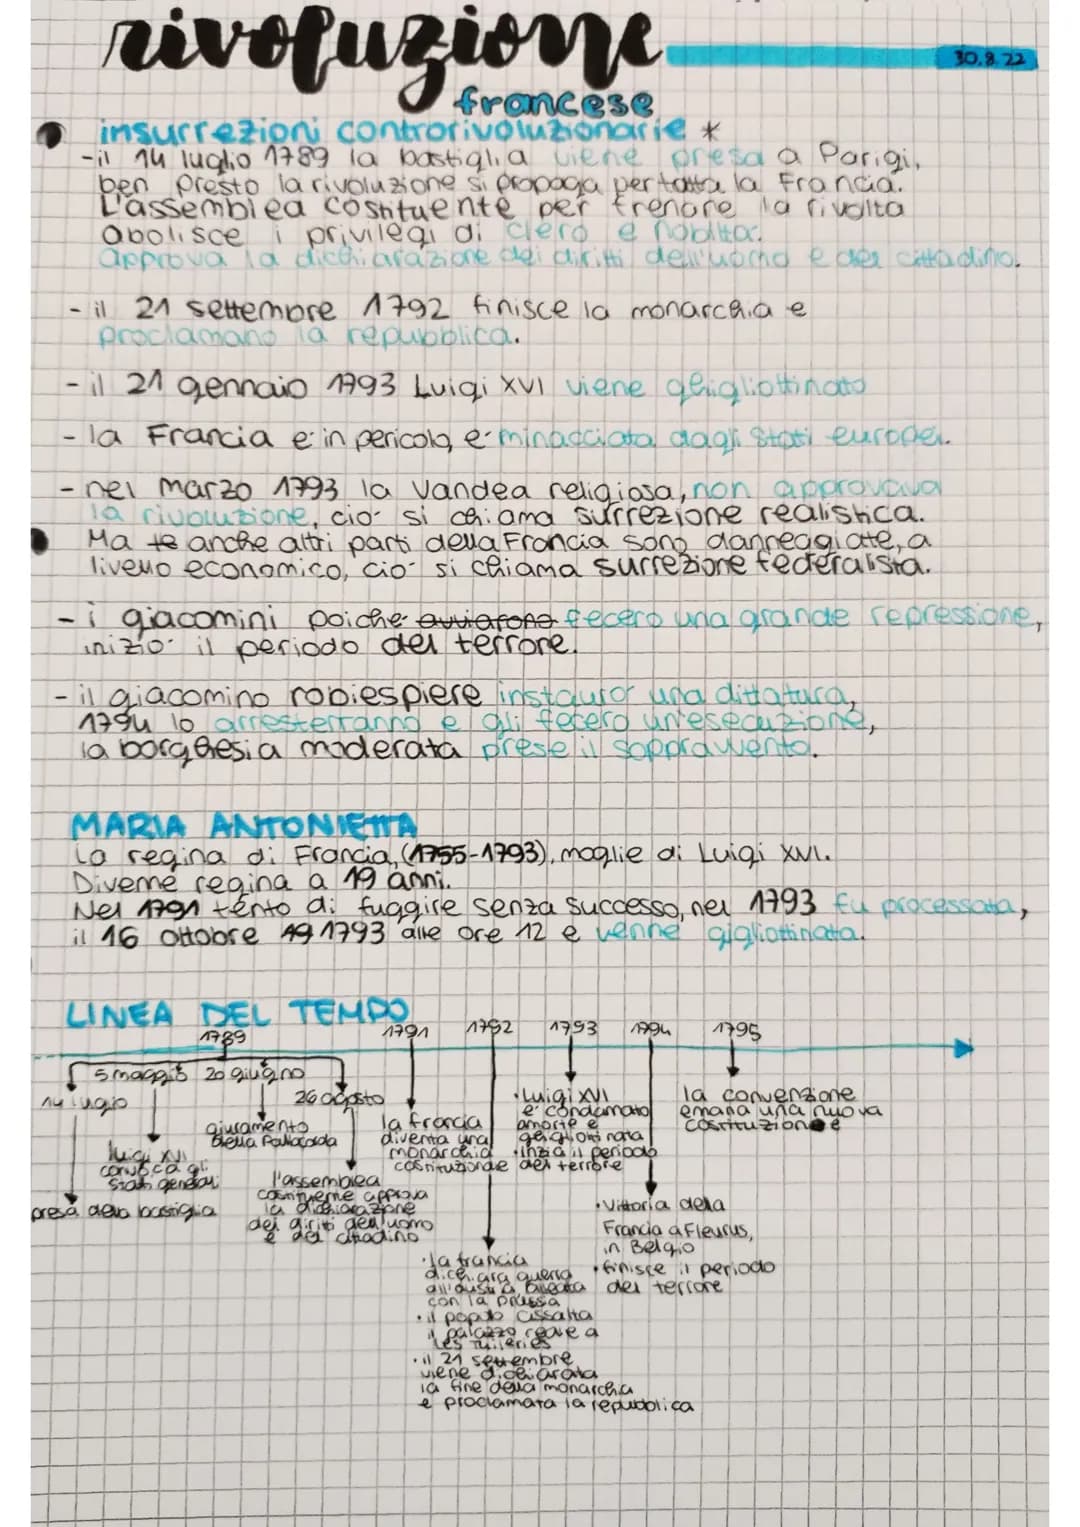 rivoluzione
30.8.22
francese
insurrezioni controrivoluzionarie *
-il 14 luglio 1789 la bastiglia viene presa a Parigi,
ben presto la rivoluzione si propaga per tutta la Francia.
L'assemblea costituente per frenare la rivolta
abolisce i privilegi di clero e nobiltà.
approva la dichiarazione dei diritti dell'uomo e del cittadino.
- il 21 settembre 1792 finisce la monarchia e
proclamano la repubblica.
- il 21 gennaio 1793 Luigi XVI viene ghigliottinato
- la Francia è in pericolo, è minacciata dagli stati europei.
- nel marzo 1793 la Vandea religiosa, non approvava
la rivoluzione, ciò si chiama surrezione realistica.
Ma te anche altri parti della Francia sono danneggiate, a
livello economico, ciò si chiama surrezione federalista.
- i giacomini poichè avviarono fecero una grande repressione,
iniziò il periodo del terrore.
- il giacomino robiespiere instaurò una dittatura,
1794 lo arresterranno e gli fecero un'esecuzione,
la borghesia moderata prese il sappravvento.
MARIA ANTONIETTA
La regina di Francia, (1755-1793), moglie di Luigi XVI.
Divenne regina a 19 anni.
Nel 1791 tentò di fuggire senza successo, nel 1793 fu processata,
il 16 ottobre 19 1793 alle ore 12 e venne gigliottinata.
LINEA DEL TEMPO
1789 1791 1792 1793 1794 1795
5 maggio 20 giugno
14 luglio
26 agosto
giuramento
della Pallacorda
luigi XVI
convoca gli
stati generali
presa della bastiglia
l'assemblea
costituente approva
la dichiarazione
dei diritti dell'uomo
e del cittadino
la francia
diventa una
monarchia
costituzionale
· la francia
dichiara guerra
all'austria alleata
con la prussia
· il popolo assalta
il palazzo reale a
Les Tuileries
· il 21 settembre
viene dichiarata
la fine della monarchia
e proclamata la repubblica
· Luigi XVI
è condannato
a morte e
ghigliottinato
· inizia il periodo
del terrore
· Vittoria della
Francia a Fleurus,
in Belgio
· finisce il periodo
del terrore
la convenzione
emana una nuova
costituzione